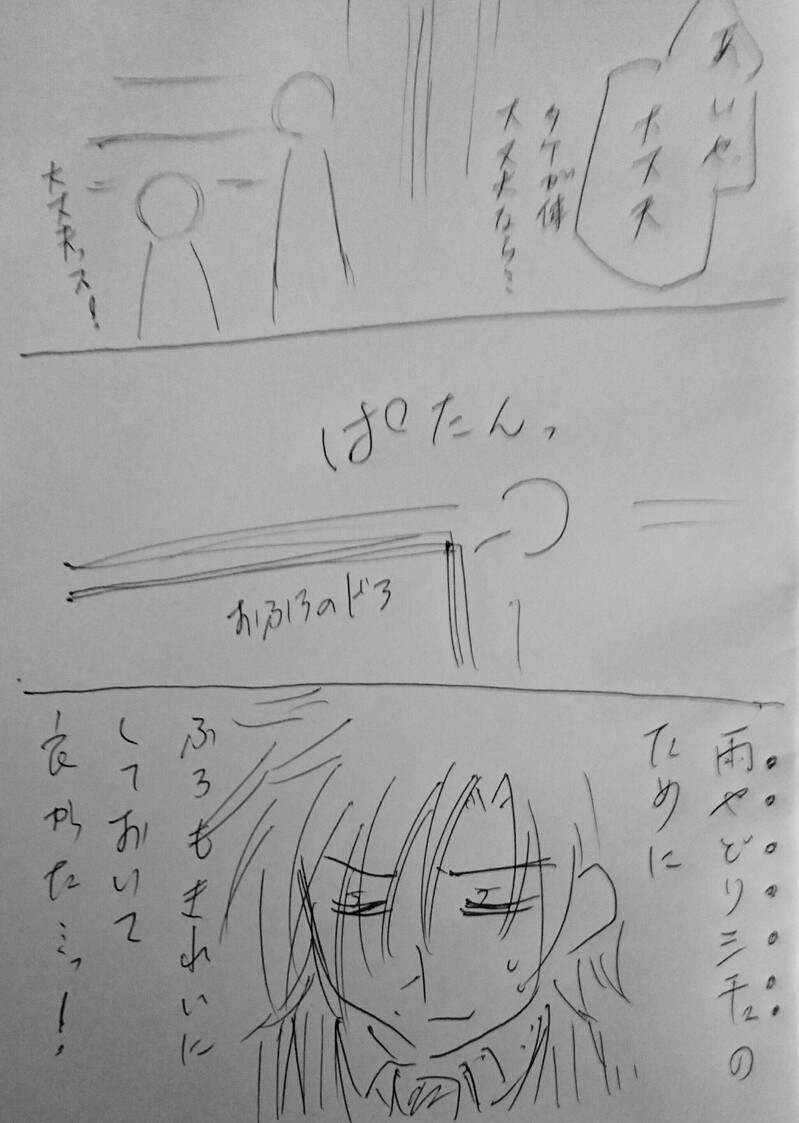 あいや、
大丈夫
タケが体
大丈夫なら…
大丈夫ッス!
ぱたんっ
おふろのドア
雨やどりミチェの
ために
ふろもきれいに
しておいて
良かった…っ!